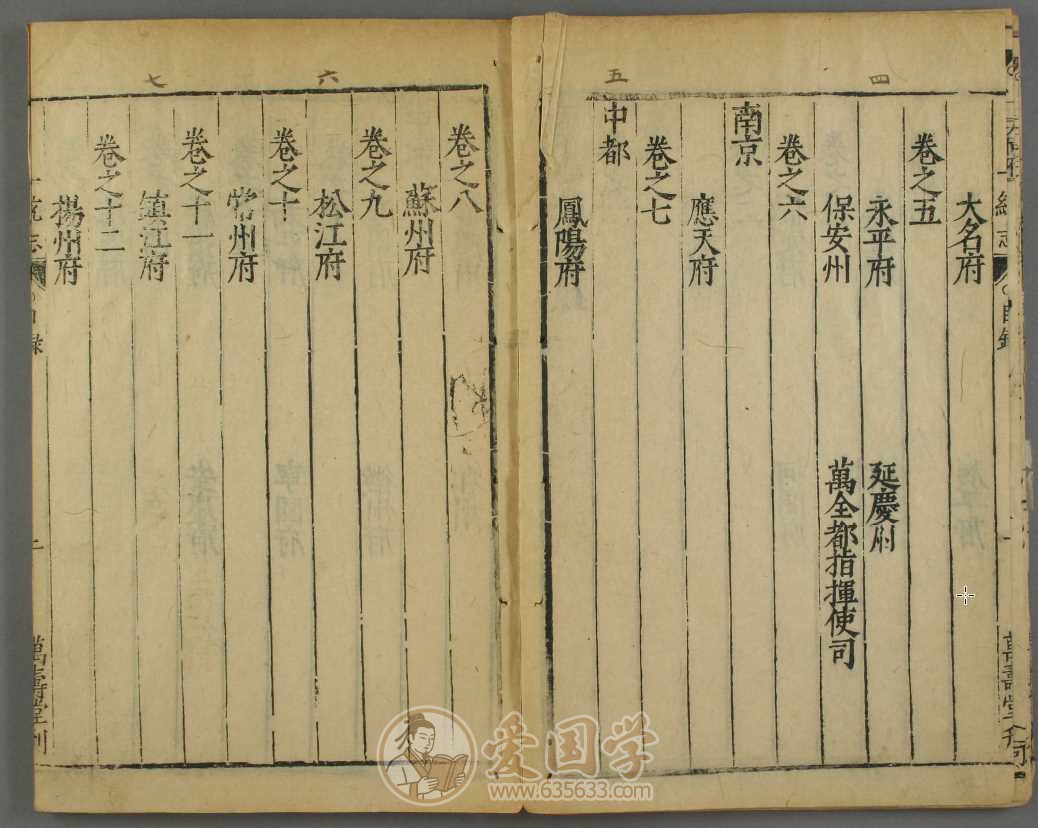 四
五
大名府
卷之五
永平府
延慶州
保安州
萬全都指揮使司
卷之六
南京
應天府
卷之七
中都
鳳陽府
六
七
卷之八
蘇州府
卷之九
松江府
卷之十
常州府
卷之十一
鎮江府
卷之十二
揚州府
萬壽堂刊
爱国学
www.635633.com